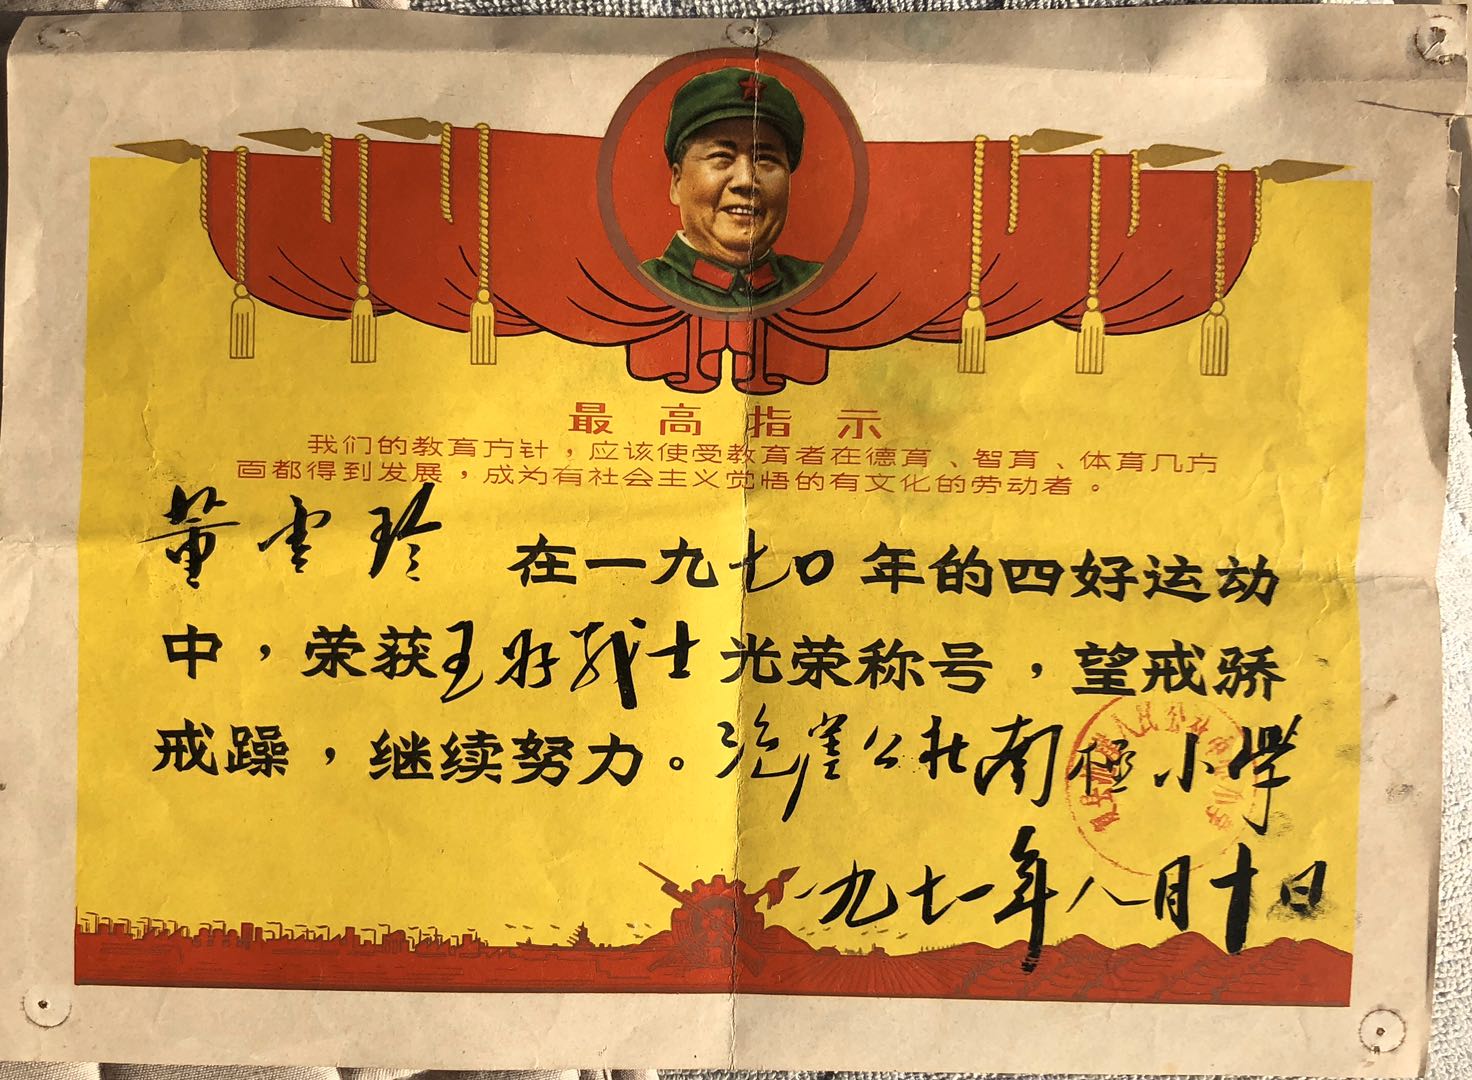 最高指示
我们的教育方针，应该使受教育者在德育、智育、体育几方
面都得到发展，成为有社会主义觉悟的有文化的劳动者。
董雲玲 在一九七〇年的四好运动
中，荣获五好战士光荣称号，望戒骄
戒躁，继续努力。洗崖公社南極小学
一九七一年八月十日